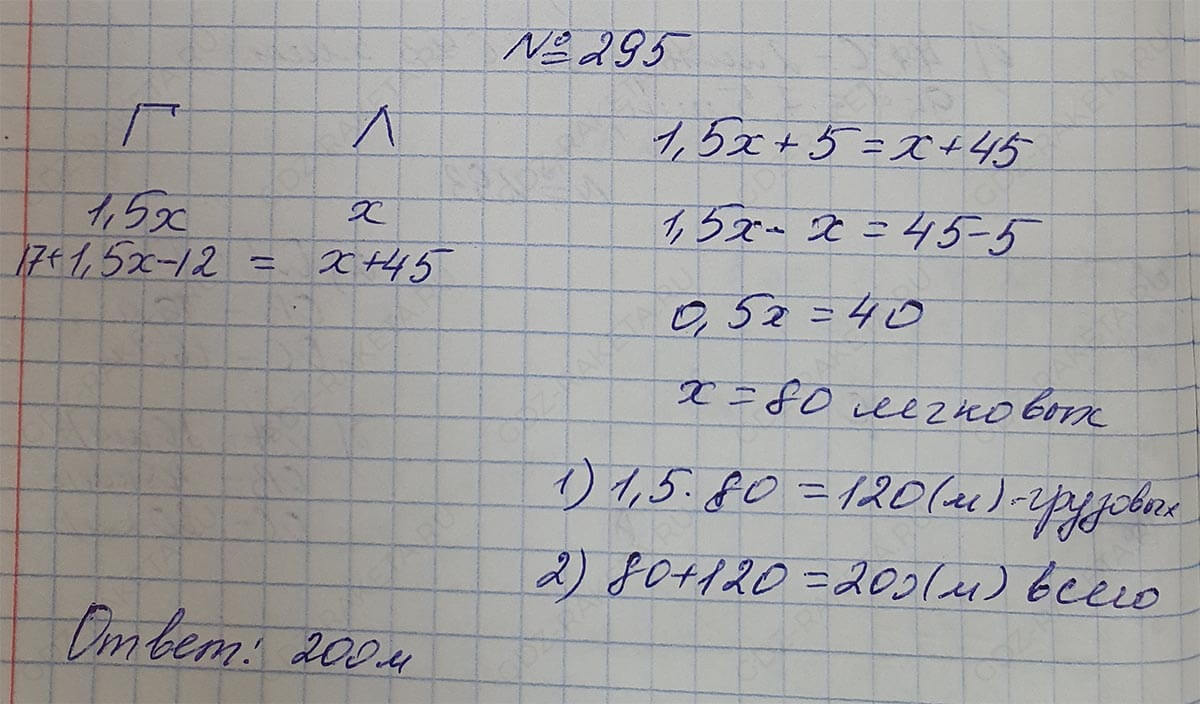 №295
Г Л
1,5x x
17+1,5x-12 = x+45
1,5x+5=x+45
1,5x-x=45-5
0,5x=40
x=80 легковых
1) 1,5·80=120(м)-грузовых
2) 80+120=200(м) всего
Ответ: 200м